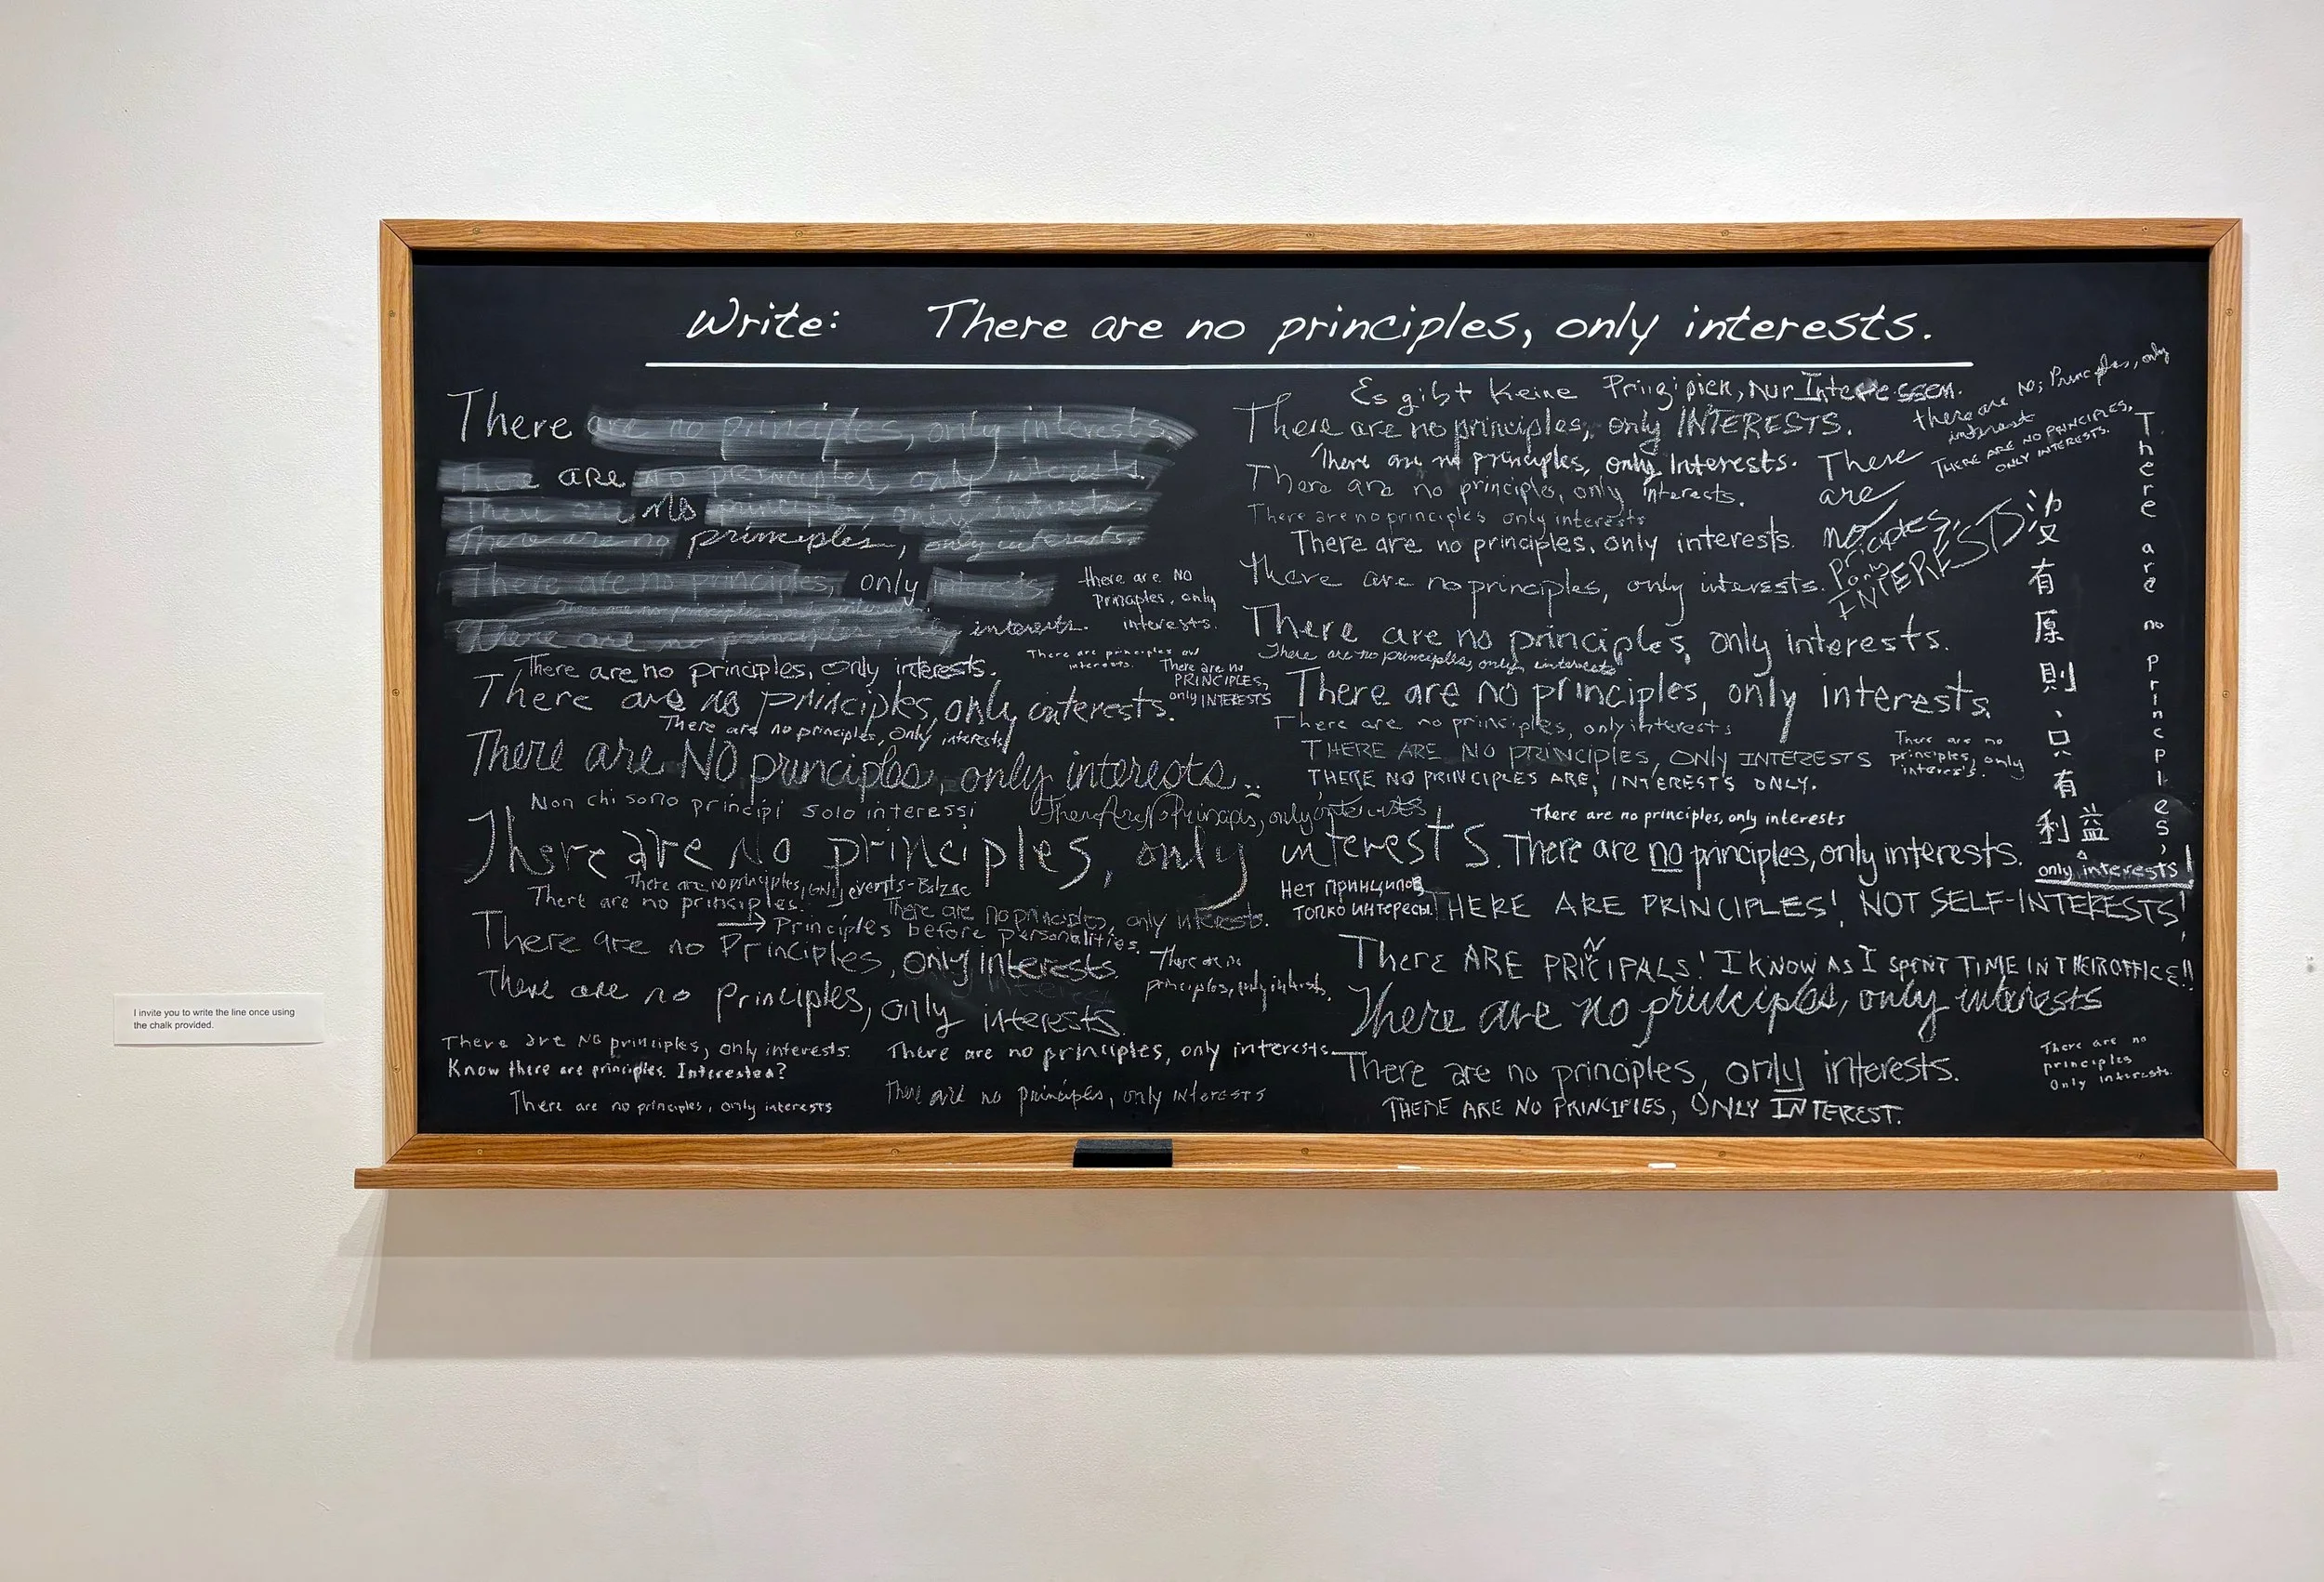 Write: There are no principles, only interests.
There are no principles, only interests.
There are no principles, only interests.
There are no principles, only interests.
There are no principles, only interests.
There are no principles, only interests
There are no principles, only interests.
There are no principles only interests.
there are NO
Principles, only
interests.
There are principles and
interests.
There are no
PRINCIPLES,
only INTERESTS
There are no principles, only interests.
There are no principles, only interests.
There are no principles, only interests
There are NO principles, only interests..
Non chi sono principi solo interessi
There Are No Principals, only interests
There are No principles, only interests.
There are no principles, only events-Balzac
There are no principles.
There are no principles, only interests.
→ Principles before personalities.
There are no Principles, only interests.
There are no
principles, only interests.
There are no Principles, only interests.
There are NO principles, only interests.
Know there are principles. Interested?
There are no principles, only interests
There are no principles, only interests.
There are no principles, only INterests
Es gibt Keine Prinzipien, Nur Interessen.
There are no principles, only INTERESTS.
There are no principles, only Interests.
There are no principles, only interests.
There are no principles only interests
There are no principles, only interests.
there are no principles, only interests.
There are no principles, only interests.
There are no principles, only interests
There are no principles, only interests.
There are no principles, only interests
THERE ARE NO PRINCIPLES, ONLY INTERESTS
THERE NO PRINCIPLES ARE, INTERESTS ONLY.
There are no
principles, only
interests.
There are no principles, only interests
There are no principles, only interests.
Нет принципов
только интересы.
THERE ARE PRINCIPLES! NOT SELF-INTERESTS!
THERE ARE PRINCIPALS! I KNOW AS I SPENT TIME IN THEIR OFFICE!!
There are no principles, only interests
There are no principles, only interests.
THERE ARE NO PRINCIPLES, ONLY INTEREST.
There are no
principles
Only interests.
there are no; Principles, only
interest
THERE ARE NO PRINCIPLES,
ONLY INTERESTS.
There
are
no
priciples,
only
INTERESTS
沒有原則、只有利益
There are no principles,
only interests!
I invite you to write the line once using
the chalk provided.